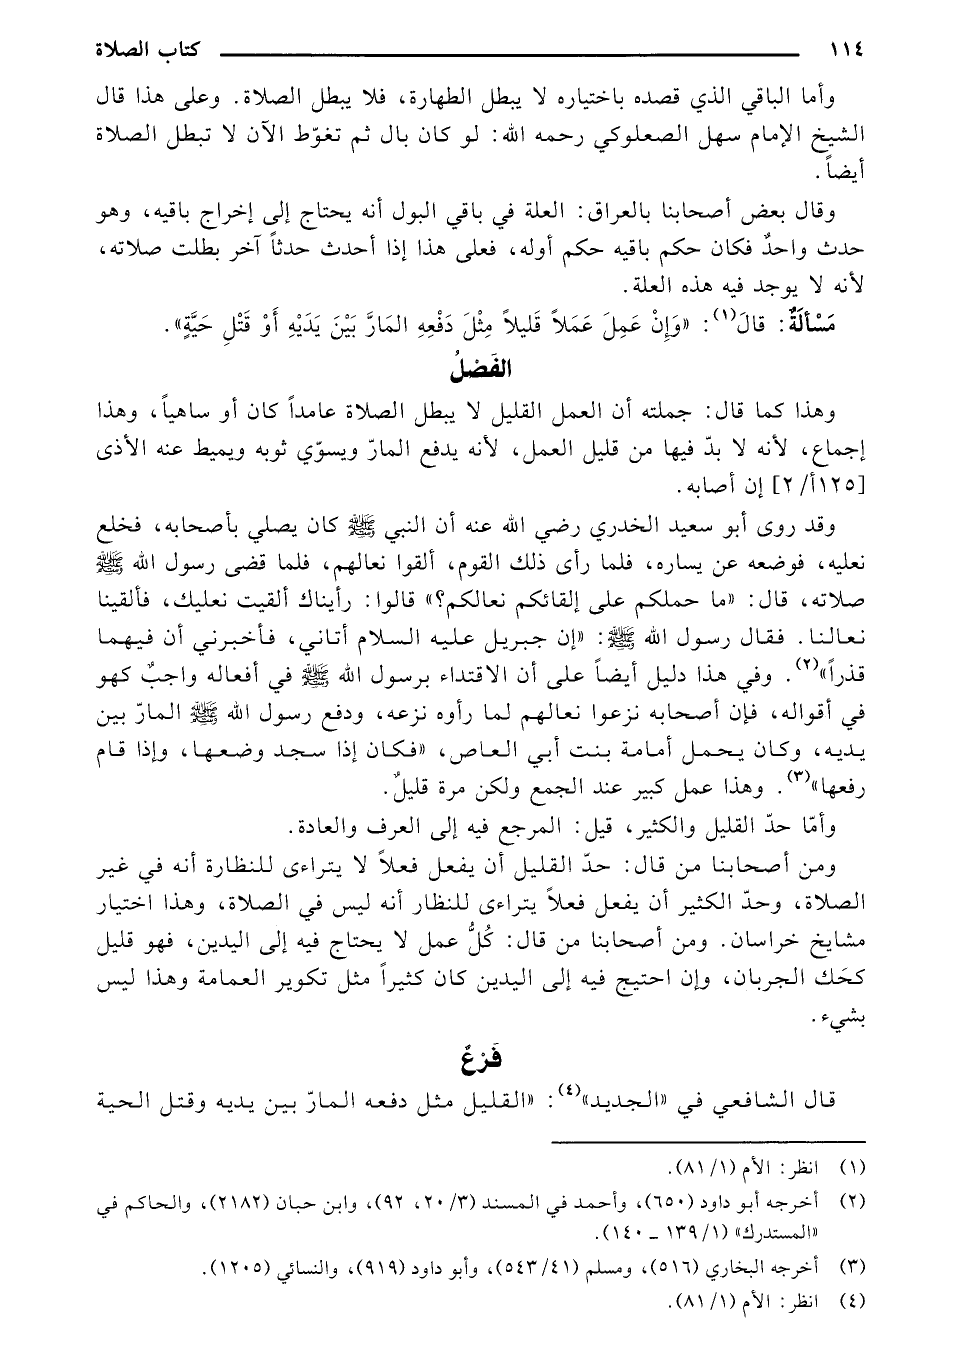 ١١٤ كتاب الصلاة
وأما الباقي الذي قصده باختياره لا يبطل الطهارة، فلا يبطل الصلاة. وعلى هذا قال
الشيخ الإمام سهل الصعلوكي رحمه الله: لو كان بال ثم تغوّط الآن لا تبطل الصلاة
أيضاً.
وقال بعض أصحابنا بالعراق: العلة في باقي البول أنه يحتاج إلى إخراج باقيه، وهو
حدث واحدٌ فكان حكم باقيه حكم أوله، فعلى هذا إذا أحدث حدثاً آخر بطلت صلاته،
لأنه لا يوجد فيه هذه العلة.
مَسْأَلَةٌ: قالَ(١): «وَإِنْ عَمِلَ عَمَلاً قَليلاً مِثْلَ دَفْعِهِ المَارَّ بَيْنَ يَدَيْهِ أَوْ قَتْلِ حَيَّةٍ».
الفَصْلُ
وهذا كما قال: جملته أن العمل القليل لا يبطل الصلاة عامداً كان أو ساهياً، وهذا
إجماع، لأنه لا بدّ فيها من قليل العمل، لأنه يدفع المارّ ويسوّي ثوبه ويميط عنه الأذى
[١٢٥أ/ ٢] إن أصابه.
وقد روى أبو سعيد الخدري رضي الله عنه أن النبي ﷺ كان يصلي بأصحابه، فخلع
نعليه، فوضعه عن يساره، فلما رأى ذلك القوم، ألقوا نعالهم، فلما قضى رسول الله ﷺ
صلاته، قال: «ما حملكم على إلقائكم نعالكم؟» قالوا: رأيناك ألقيت نعليك، فألقينا
نعالنا. فقال رسول الله ﷺ: «إن جبريل عليه السلام أتاني، فأخبرني أن فيهما
قذراً»(٢). وفي هذا دليل أيضاً على أن الاقتداء برسول الله ﷺ في أفعاله واجبٌ كهو
في أقواله، فإن أصحابه نزعوا نعالهم لما رأوه نزعه، ودفع رسول الله ﷺ المارّ بين
يديه، وكان يحمل أمامة بنت أبي العاص، «فكان إذا سجد وضعها، وإذا قام
رفعها»(٣). وهذا عمل كبير عند الجمع ولكن مرة قليلٌ.
وأمّا حدّ القليل والكثير، قيل: المرجع فيه إلى العرف والعادة.
ومن أصحابنا من قال: حدّ القليل أن يفعل فعلاً لا يتراءى للنظارة أنه في غير
الصلاة، وحدّ الكثير أن يفعل فعلاً يتراءى للنظار أنه ليس في الصلاة، وهذا اختيار
مشايخ خراسان. ومن أصحابنا من قال: كُلُّ عمل لا يحتاج فيه إلى اليدين، فهو قليل
كحَك الجربان، وإن احتيج فيه إلى اليدين كان كثيراً مثل تكوير العمامة وهذا ليس
بشيء.
فَرْعٌ
قال الشافعي في «الجديد»(٤): «القليل مثل دفعه المارّ بين يديه وقتل الحية
(١) انظر: الأم (١/ ٨١).
(٢) أخرجه أبو داود (٦٥٠)، وأحمد في المسند (٣/ ٢٠، ٩٢)، وابن حبان (٢١٨٢)، والحاكم في
«المستدرك» (١/ ١٣٩ ــ ١٤٠).
(٣) أخرجه البخاري (٥١٦)، ومسلم (٤١/ ٥٤٣)، وأبو داود (٩١٩)، والنسائي (١٢٠٥).
(٤) انظر: الأم (١/ ٨١).